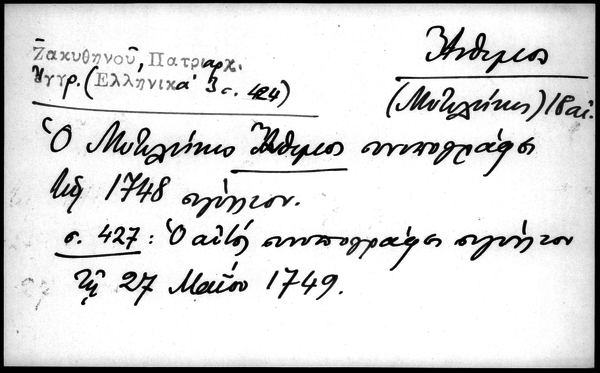 Ζακυθηνοῦ, Πατριαρχ.
Ἔγγρ. (Ἑλληνικά 3 σ. 424)
Ἄνθιμος
(Μυτιλήνης) 18 αἰ.
Ὁ Μυτιλήνης Ἄνθιμος συνυπογράφει
τῷ 1748 σιγίλλιον.
σ. 427: Ὁ αὐτός συνυπογράφει σιγίλλιον
τῇ 27 Μαΐου 1749.